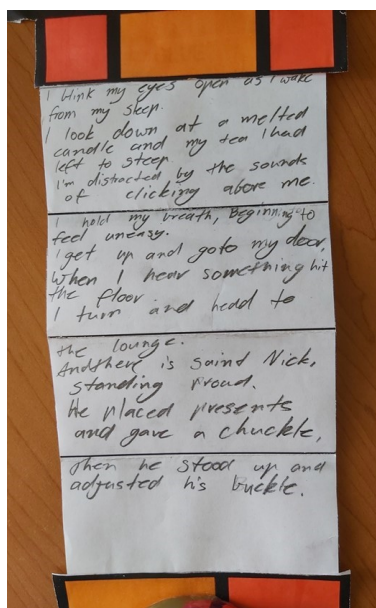 I blink my eyes open as I wake
from my sleep.
I look down at a melted
candle and my tea I had
left to steep.
I'm distracted by the sounds
of clicking above me.
I hold my breath, Beginning to
feel uneasy.
I get up and goto my door,
When I hear something hit
the floor
I turn and head to
the lounge.
And there is saint Nick,
standing Proud.
He placed presents
and gave a chuckle,
Then he stood up and
adjusted his buckle.